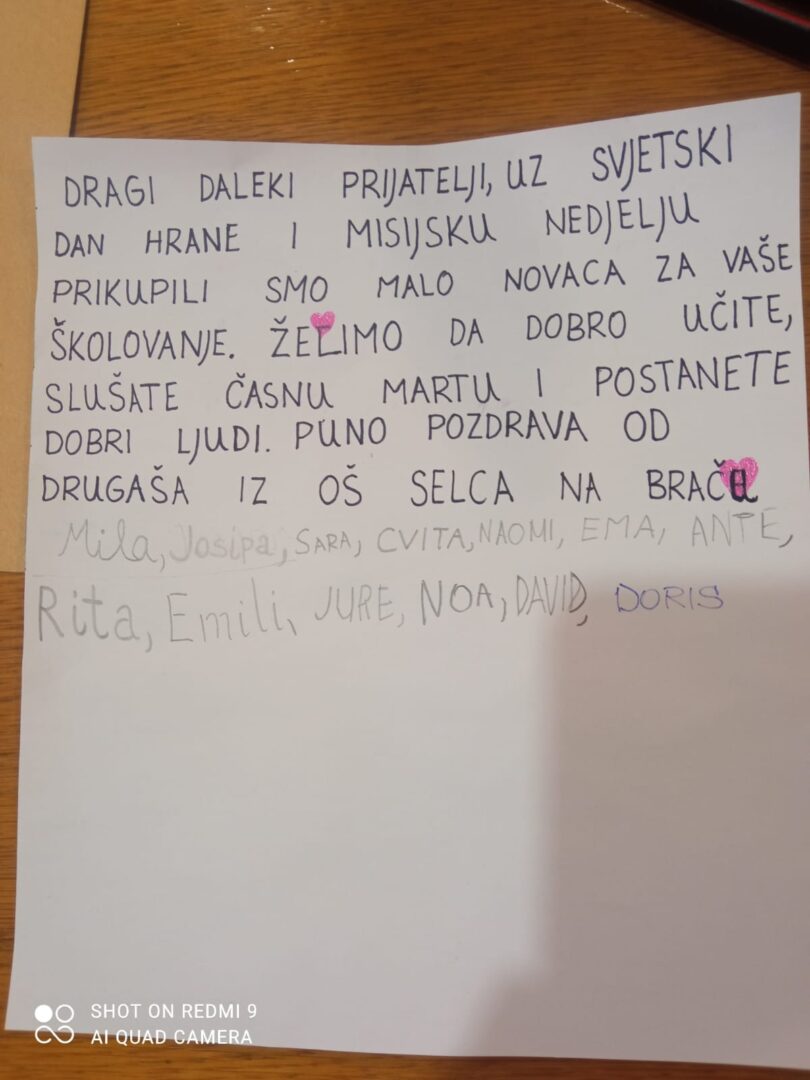 DRAGI DALEKI PRIJATELJI, UZ SVJETSKI
DAN HRANE I MISIJSKU NEDJELJU
PRIKUPILI SMO MALO NOVACA ZA VAŠE
ŠKOLOVANJE. ŽELIMO DA DOBRO UČITE,
SLUŠATE ČASNU MARTU I POSTANETE
DOBRI LJUDI. PUNO POZDRAVA OD
DRUGAŠA IZ OŠ SELCA NA BRAČU
Mila, Josipa, SARA, CVITA, NAOMI, EMA, ANTE,
Rita, Emili, JURE, NOA, DAVID, DORIS
SHOT ON REDMI 9
AI QUAD CAMERA